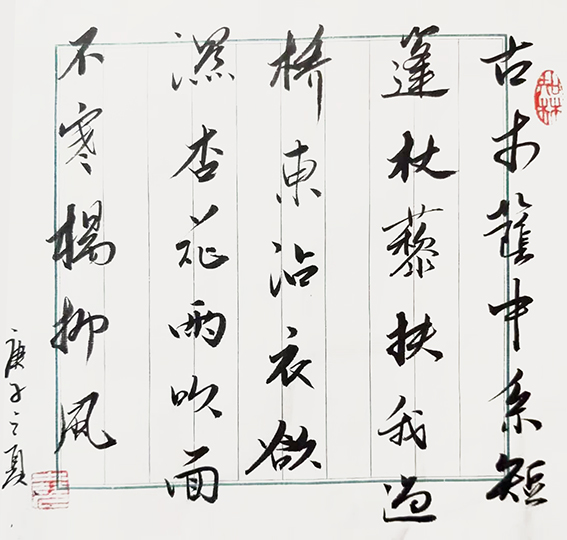 古木蔭中系短
篷杖藜扶我過
橋東沾衣欲
濕杏花雨吹面
不寒楊柳風
庚子之夏